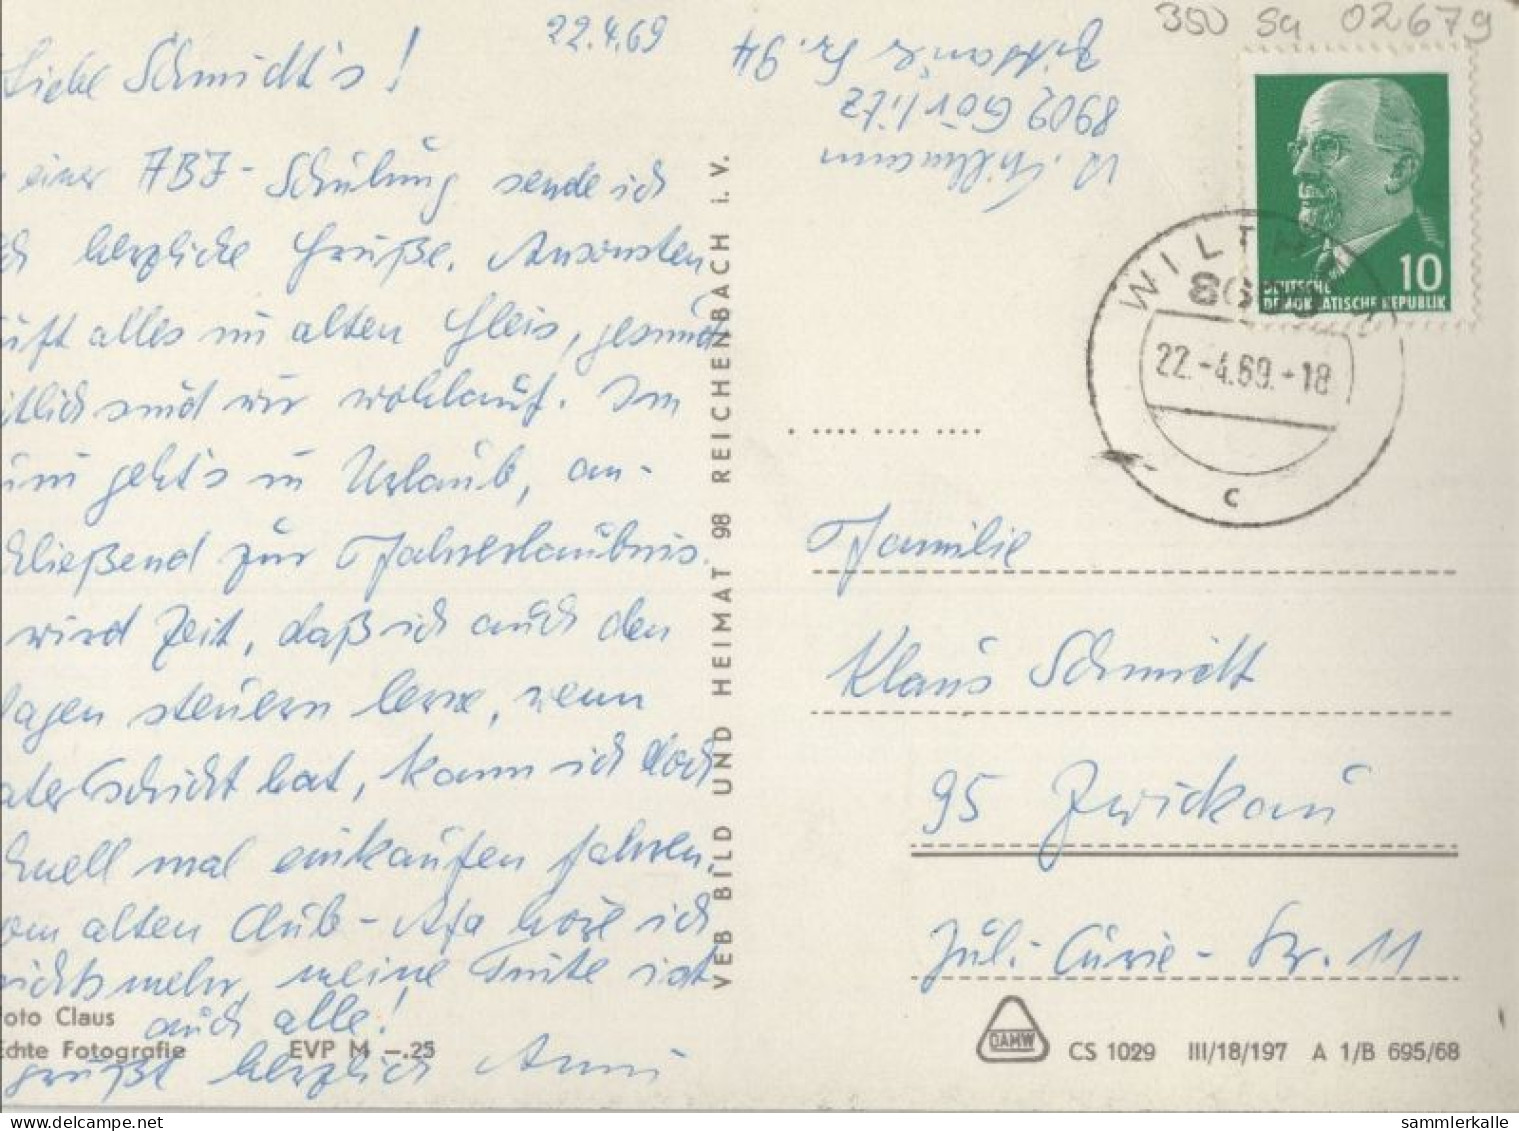 350 Sa 02679
22.4.69
Liebe Schmidt's!
einer ABI-Schulung sende ich
herzliche Grüße. Ansonsten
alles im alten Gleis, gesund
sind wir wohlauf. Im
geht's in Urlaub, an-
schließend zur Fahrerlaubnis.
wird Zeit, daß ich auch den
Wagen steuern lerne, wenn
Schicht hat, kann ich doch
schnell mal einkaufen fahren.
vom alten Club- höre ich
nichts mehr, meine Tinte ist
auch alle!
grüßt herzlich Anni
Foto Claus
Echte Fotografie EVP M -.25
VEB BILD UND HEIMAT 98 REICHENBACH I. V.
8902 Görlitz
Zittauer Str. 94
DEUTSCHE
DEMOKRATISCHE REPUBLIK
10
WILTHEN
22.-4.69.-18
c
Familie
Klaus Schmidt
95 Zwickau
Jul.-Curie-Str. 11
DAMW
CS 1029 III/18/197 A 1/B 695/68
sammlerkalle